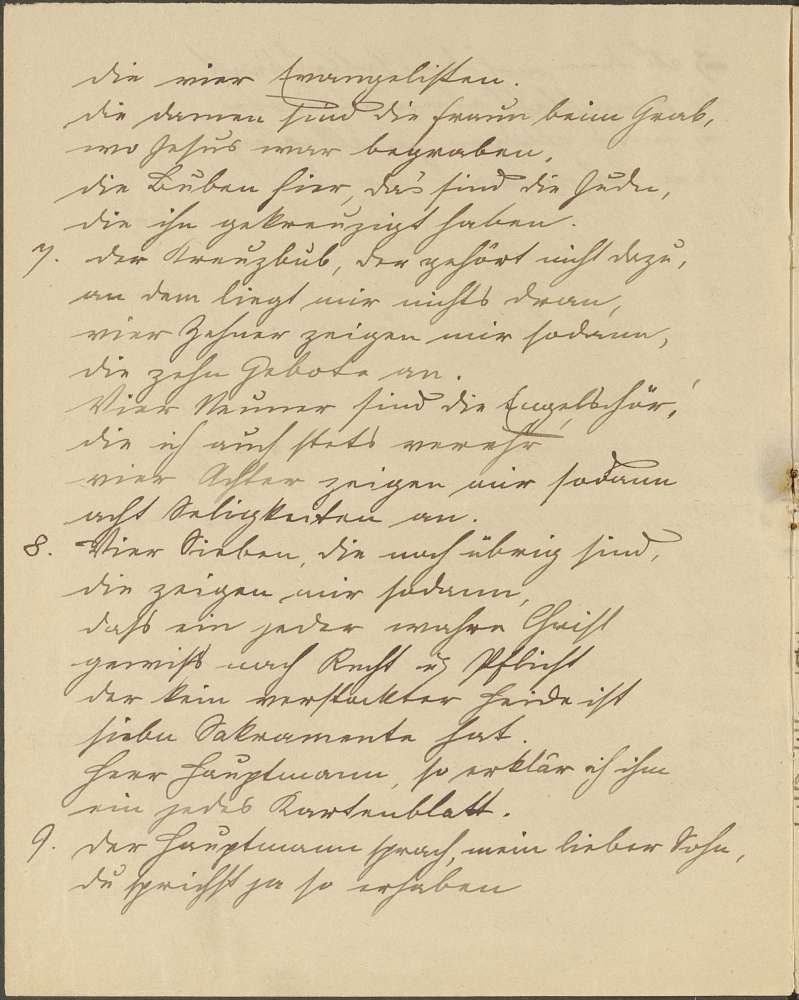 die vier Evangelisten.
die damen sind die fraun beim Grab,
wo Jesus war begraben,
die Buben hier, das sind die Judn,
die ihn gekreuzigt haben.
7. der Kreuzbub, der gehört nicht dazu,
an dem liegt mir nichts dran,
vier Zehner zeigen mir sodann,
die zehn Gebote an.
Vier Neuner sind die Engelschör,
die ich auch stets verehr
vier Achter zeigen mir sodann
acht Seligkeiten an.
8. Vier Sieben, die noch übrig sind,
die zeigen mir sodann,
dass ein jeder wahre Christ
gewiss nach Recht u Pflicht
der kein verstockter Heide ist
siebn Sakramente hat.
Herr Hauptmann, so erklär ich ihm
ein jedes Kartenblatt.
9. der Hauptmann sprach, mein lieber Sohn,
du sprichst ja so erhaben